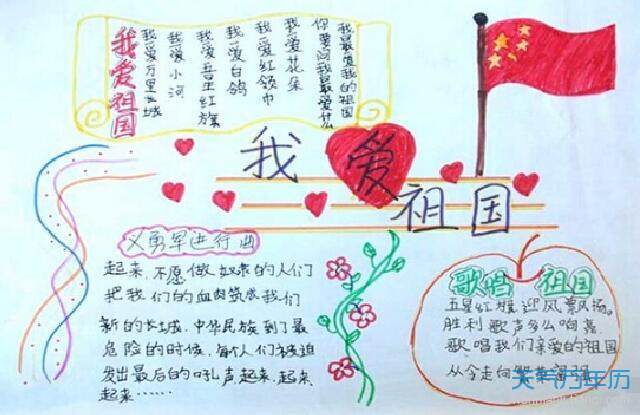 我爱祖国
我爱万里长城
我爱小河
我爱白鸽
我爱红领巾
我爱花朵
你要问我最爱什么
我最爱我的祖国
我爱祖国
义勇军进行曲
起来,不愿做奴隶的人们
把我们的血肉筑成我们
新的长城,中华民族到了最
危险的时候,每个人们被迫
发出最后的吼声,起来,起来,
起来……
歌唱 祖国
五星红旗迎风飘扬。
胜利歌声多么响亮
歌唱我们亲爱的祖国
从今走向
天气万年历